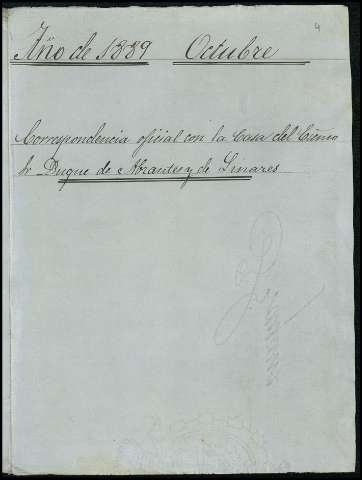 4
Año de 1889 Octubre
Correspondencia oficial con la Casa del Excmo
Sr Duque de Abrantes y de Linares